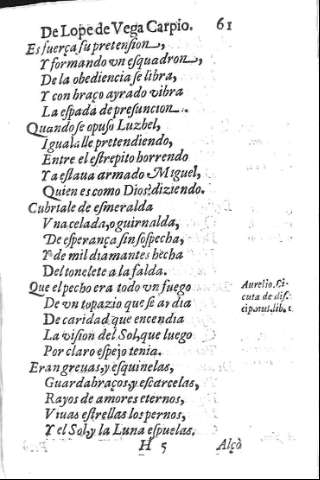 De Lope de Vega Carpio. 61
Es fuerça ſu pretenſion,
Y formando vn eſquadron,
De la obediencia ſe libra,
Y con braço ayrado vibra
La eſpada de preſuncion.
Quando ſe opuſo Luzbel,
Igualalle pretendiendo,
Entre el eſtrepito horrendo
Ya eſtaua armado Miguel,
Quien es como Dios? diziendo.
Cubriale de eſmeralda
Vna celada, o guirnalda,
De eſperança ſin ſoſpecha,
Y de mil diamantes hecha
Del tonelete a la falda.
Que el pecho era todo vn fuego
De vn topazio que ſe ardia
De caridad que encendia
La viſion del Sol, que luego
Por claro eſpejo tenia.
Aurelio, Ci-
cuta de diſ-
cip
lib.
Eran greuas, y eſquinelas,
Guardabraços, y eſcarcelas,
Rayos de amores eternos,
Viuas eſtrellas los pernos,
Y el Sol, y la Luna eſpuelas.
H 5 Alçò